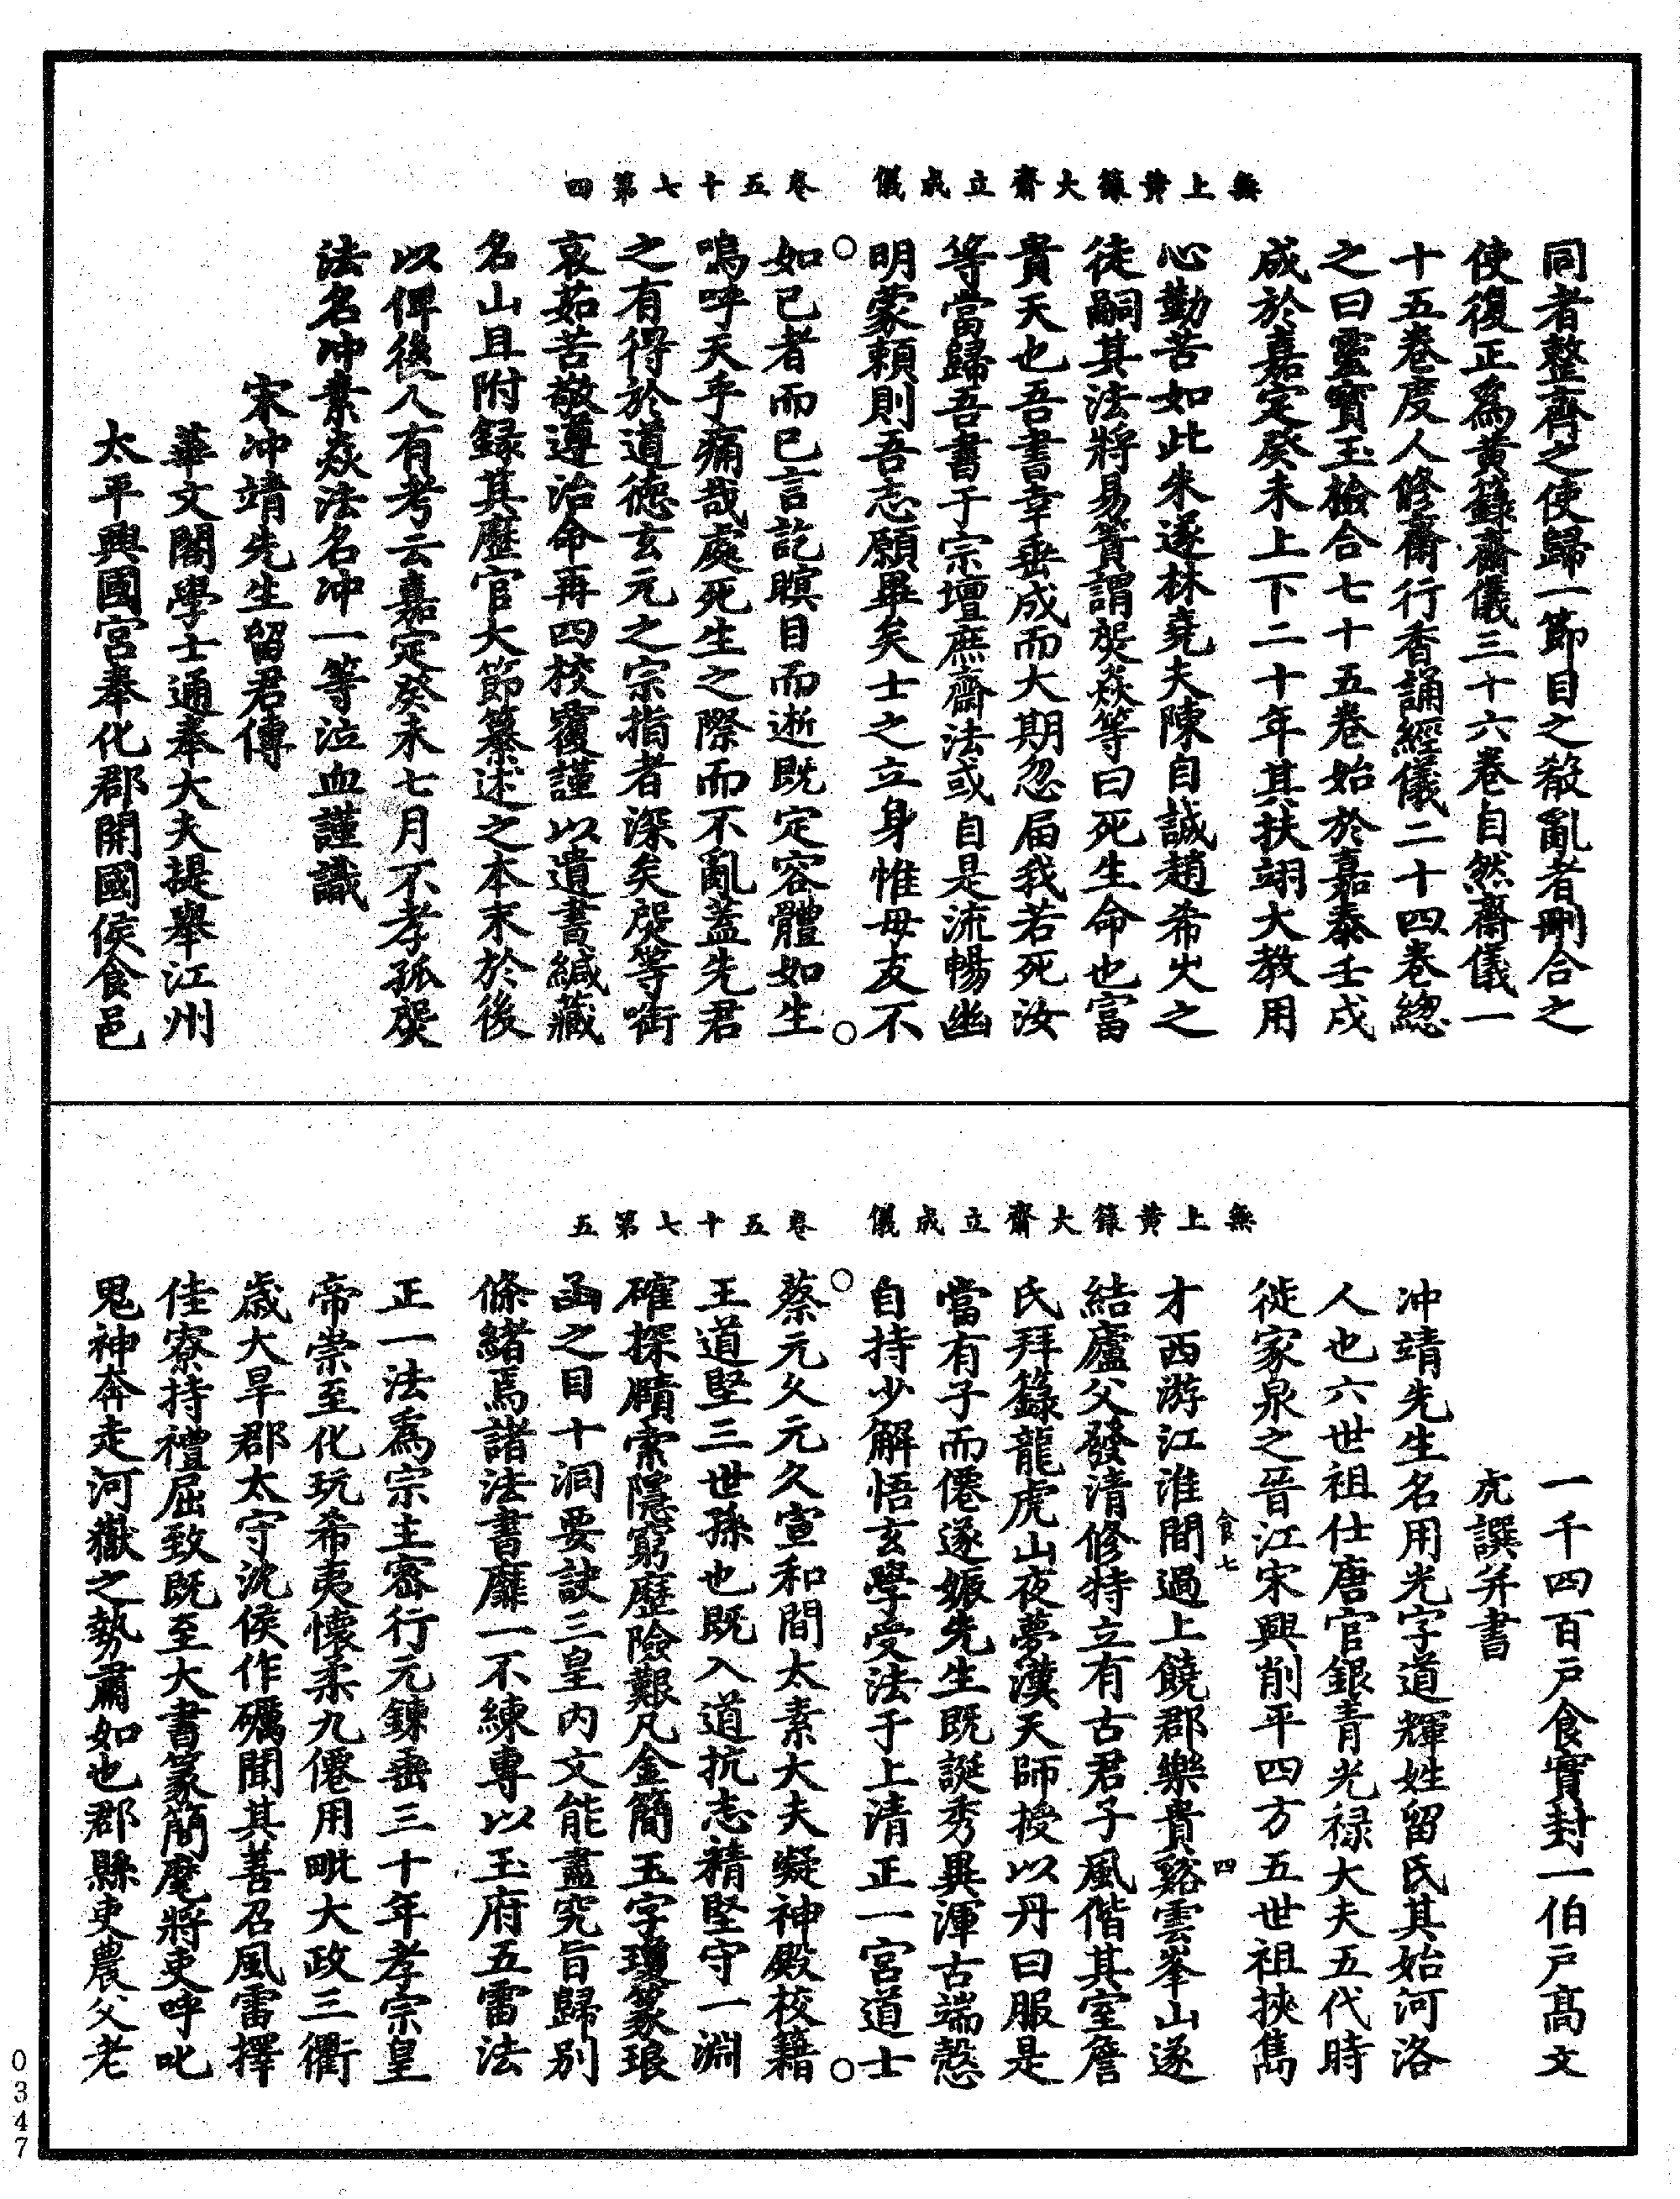 無上黄籙大齋立成儀　卷五十七第四
同者整齊之使歸一節目之殽亂者刪合之
使復正爲黄籙齋儀三十六卷自然齋儀一
十五卷度人修齋行香誦經儀二十四卷緫
之曰靈寳玉檢合七十五卷始於嘉泰壬戌
成於嘉定癸未上下二十年其扶翊大教用
心勤苦如此朱遂林堯夫陳自誠趙希火之
徒嗣其法將易簀謂煚焱等曰死生命也富
貴天也吾書幸垂成而大期忽届我若死汝
等當歸吾書于宗壇庶齋法或自是流暢幽
明蒙頼則吾志願畢矣士之立身惟毋友不
如已者而已言訖瞑目而逝既定容體如生
嗚呼天乎痛哉處死生之際而不亂蓋先君
之有得於道德玄元之宗指者深矣煚等衘
哀茹苦敬遵治命再四校覆謹以遺書緘藏
名山且附録其歷官大節纂述之本末於後
以俾後人有考云嘉定癸未七月不孝孤煚
法名冲素焱法名冲一等泣血謹識
宋冲靖先生留君傳
華文閣學士通奉大夫提舉江州
太平興國宮奉化郡開國侯食邑
無上黄籙大齋立成儀　卷五十七第五
一千四百戶食實封一伯戶髙文
虎譔并書
冲靖先生名用光字道輝姓留氏其始河洛
人也六世祖仕唐官銀青光禄大夫五代時
徙家泉之晉江宋興削平四方五世祖挾雋
食七　四
才西游江淮間過上饒郡樂貴谿雲峯山遂
結廬父發清修特立有古君子風偕其室詹
氏拜籙龍虎山夜夢漢天師授以丹曰服是
當有子而僊遂娠先生既誕秀異渾古端慤
自持少解悟玄學受法于上清正一宮道士
蔡元久元久宣和間太素大夫凝神殿校籍
王道堅三世孫也既入道抗志精堅守一淵
確探賾索隱窮歷險艱凡金簡玉字瓊篆琅
函之目十洞要訣三皇内文能盡究旨歸别
條緒焉諸法書靡一不練專以玉府五雷法
正一法爲宗主密行元鍊垂三十年孝宗皇
帝崇至化玩希夷懷柔九僊用毗大政三衢
歲大旱郡太守沈侯作礪聞其善召風雷擇
佳寮持禮屈致既至大書篆簡麾將吏呼叱
鬼神奔走河嶽之勢肅如也郡縣吏農父老
0347